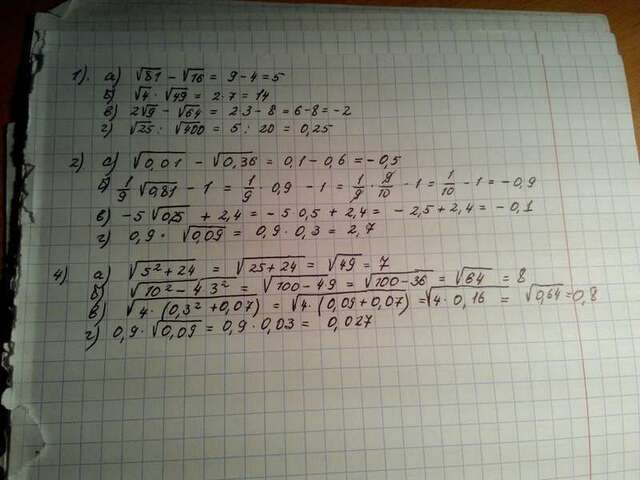 1). а) √81 − √16 = 9 − 4 = 5
б) √4 · √49 = 2 · 7 = 14
в) 2√9 − √64 = 2·3 − 8 = 6 − 8 = −2
г) √25 : √400 = 5 : 20 = 0,25
2). а) √0,01 − √0,36 = 0,1 − 0,6 = −0,5
б) 1/9 √0,81 − 1 = 1/9 · 0,9 − 1 = 1/9 · 9/10 − 1 = 1/10 − 1 = −0,9
в) −5√0,25 + 2,4 = −5 0,5 + 2,4 = −2,5 + 2,4 = −0,1
г) 0,9 · √0,09 = 0,9 · 0,3 = 2,7
4) а) √5² + 24 = √25 + 24 = √49 = 7
б) √10² − 4 3² = √100 − 49 = √100 − 36 = √64 = 8
в) √4 · (0,3² + 0,07) = √4 · (0,09 + 0,07) = √4 · 0,16 = √0,64 = 0,8
г) 0,9 · √0,09 = 0,9 · 0,03 = 0,027